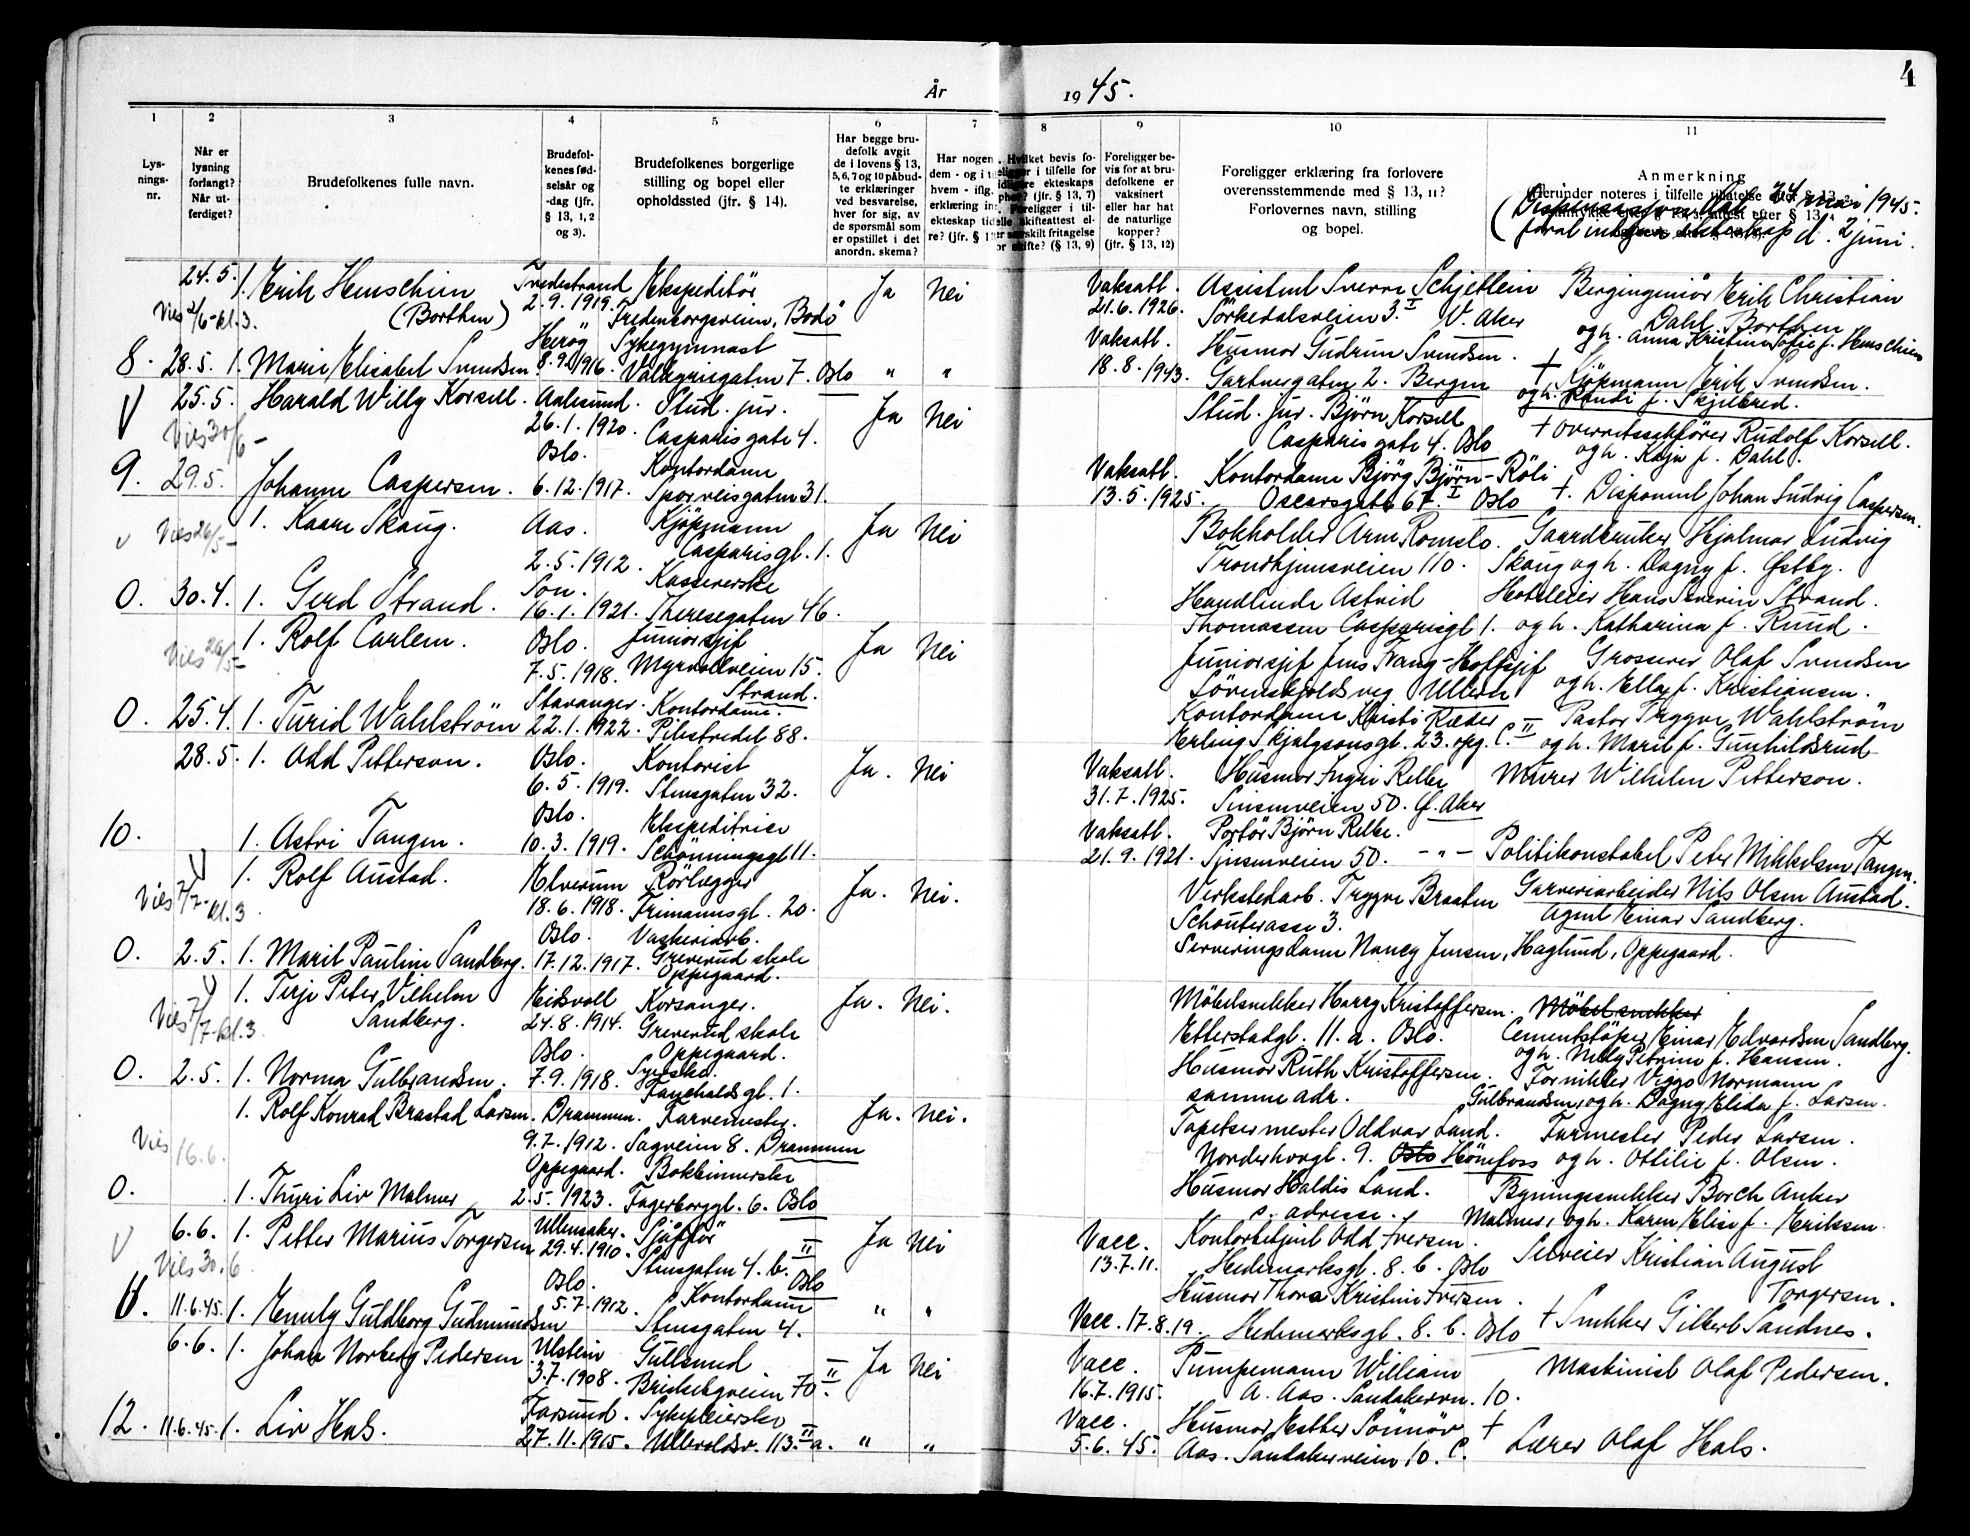 4
År 1945.
1 2 3 4 5 6 7 8 9 10 11
Lys-
nings-
nr.
Når er
lysning
forlangt?
Når ut-
ferdiget?
Brudefolkenes fulle navn.
Brudefol-
kenes fød-
selsår og
-dag (jfr.
§ 13, 1, 2
og 3).
Brudefolkenes borgerlige
stilling og bopel eller
opholdssted (jfr. § 14).
Har begge bru-
defolk avgit
de i lovens § 13,
5, 6, 7 og 10 påbud-
te erklæringer
ved besvarelse,
hver for sig, av
de spørsmål som
er opstillet i det
anordn. skema?
Foreligger be-
vis for at bru-
defolkene er
vaksinert
eller har hat
de naturlige
kopper?
(jfr. § 13, 12)
Foreligger erklæring fra forlovere
overensstemmende med § 13, 11?
Forlovernes navn, stilling
og bopel.
Anmerkning
24 mai 1945.
d. 2 juni.
24.5. 1. Erik Henschien Tvedestrand Ekspeditör Ja Nei Vaksatt. Assistent Sverre Schjetlein Bergingeniör Erik Christian
Vies 2/6-kl.3. (Borthen) 2.9.1919. Fredenborgveien, Bodö 21.6.1926. Sörkedalsveien 3.I V. Aker Dahl Borthen
og h. Anna Kristine Sofie f. Henschien
Heröy Sykegymnast Vaksatt. Husmor Gudrun Svendsen. † Kjöpmann Erik Svendsen.
8. 28.5. 1. Marie Elisabet Svendsen 8.9.1916. Valkyriegaten 7. Oslo " " 18.8.1943. Gartnergaten 2. Bergen og h. Randi f. Skjilbred.
V 25.5. Harald Willy Korsell. Aalesund. Stud. jur. Ja Nei Stud. jur. Björn Korsell † Overrettssakförer Rudolf Korsell.
Vies 30/6 - 26.1.1920. Casparis gate 4. Casparis gate 4. Oslo og h. Kaja f. Dahl.
Oslo. Kontordame Vaksatt. Kontordame Björg Björn-Röli
9. 29.5. Johanne Caspersen. 6.12.1917. Sporveisgaten 31. 13.5.1925. Oscarsgate 67.I Oslo †. Disponent Johan Ludvig Caspersen.
v Vies 26/5 - 1. Kaare Skaug. Aas. Kjöpmann Ja Nei Bokholder Arne Romslo. Gaardbruker Hjalmar Ludvig
2.5.1912. Casparisgt. 1. Trondhjemsveien 110. Skaug og h. Dagny f. Østby.
Son. Kassererske Handlende Astrid Hotelleier Hans Severin Strand.
0. 30.4. 1. Gerd Strand. 16.1.1921. Theresegaten 46. Thomassen Casparisgt 1. og h. Katharina f. Ruud.
Vies 26/5 - 1. Rolf Carlem. Oslo. Juniorsjef Ja Nei Juniorsjef Jens Fang-Hoffsjef Grosserer Olaf Svendsen
7.5.1918. Myrvollveien 15. Strand. Lövenskjoldsveg Ullern og h. Ella f. Kristiansen.
Stavanger. Kontordame. Kontordame Kristi Ræder Pastor Trygve Wahlström
0. 25.4. 1. Turid Wahlström 22.1.1922. Pilestredet 88. Erling Skjalgsonsgt. 23. opg. C. II og h. Marit f. Gunhildsrud
28.5. 1. Odd Petterson. Oslo. Kontorist Ja. Nei Vaksatt. Husmor Ingri Relbe Murer Wilhelm Petterson.
6.5.1919. Stensgaten 32. 31.7.1925. Sinsenveien 50. Ø. Aker
Oslo. Ekspeditrise Vaksatt. Portör Björn Relbe.
10. 1. Astri Tangen. 10.3.1919. Schönningsgt 11. 21.9.1921. Sinsenveien 50. - " - Politikonstabel Peter Mikkelsen Tangen.
V 1. Rolf Austad. Elverum Rörlegger Ja. Nei. Verkstedarb. Trygve Braaten Garveriarbeider Nils Olsen Austad.
Vies 7/7-kl.3 18.6.1918. Frimannsgt. 20. Schouterasse 3. Agent Einar Sandberg.
Oslo. Vaskeriarb. Serveringsdame Nancy Jensen, Haglund, Oppegaard.
0. 2.5. 1. Marit Pauline Sandberg. 17.12.1917. Greverud skole Oppegaard.
V 1. Terje Peter Vilhelm Sandberg. Eidsvoll Korsanger. Ja. Nei. Möbelsnekker Harry Kristoffersen. Möbelsnekker
Vies 7/7-kl.3 24.8.1914. Greverud skole Oppegaard. Etterstadgt. 11. a. Oslo. Cementstöper Einar Edvardsen Sandberg.
og h. Milly Petrine f. Hansen.
Oslo. Syerske. Husmor Ruth Kristoffersen. Fornikler Viggo Normann
0. 2.5. 1. Norma Gulbrandsen. 7.9.1918. Fauchaldsgt. 1. samme adr. Gulbrandsen, og h. Dagny Elida f. Larsen.
1. Rolf Konrad Brastad Larsen. Drammen. Farvemester. Ja. Nei. Tapetsermester Oddvar Land. Farmester Peder Larsen.
Vies 16.6. 9.7.1912. Sagveien 8. Drammen Norderhovgt. 9. Oslo Hönefoss og h. Otilie f. Olsen.
Oppegaard. Bokbinnerske Husmor Haldis Land. Bygningssnekker Borch Anker
0. 1. Thyri Liv Malmer 2.5.1923. Fagerborggt. 6. Oslo s. adresse. Malmer, og h. Karen Elise f. Eriksen.
V 6.6. 1. Petter Marius Torgersen Ullensaker. Sjåfför Ja Nei Vacc. Kontorbetjent Odd Iversen. Selveier Kristian August
Vies 30.6. 29.4.1910. Stensgaten 4. b. II Oslo 13.7.11. Hedemarksgt. 8. b. Oslo Torgersen.
Oslo. Kontordame Husmor Thora Kristine Iversen.
11. 11.6.45. 1. Emily Guldborg Gudmundsen 5.7.1912. Stensgaten 4. " " Vacc. 17.8.19. Hedemarksgt. 8. b. Oslo † Snekker Gilbert Sandnes.
6.6. 1. Johan Norberg Pedersen Ulstein Gullsmed Ja Nei Vacc. Pumpemann William Maskinist Olaf Pedersen.
3.7.1908. Briskebyveien 70. II 16.7.1915. A. Aas. Sandakervn. 10.
Farsund. Sykepleierske Vacc. Husmor Esther Sönnöv †
12. 11.6.45. 1. Liv Hals. 27.11.1915. Ullevoldsv. 113. II a. " " 5.6.45. Aas. Sandakerveien 10. C. Lærer Olaf Hals.